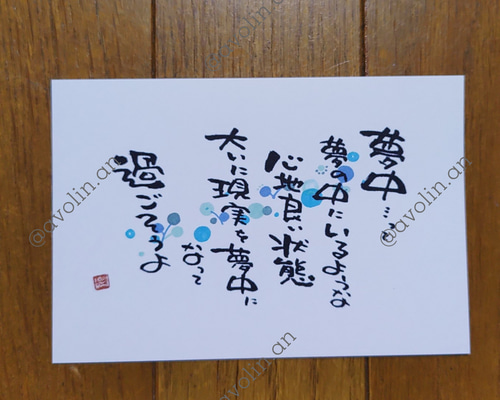 夢中…って
夢の中にいるような
心地良い状態
大いに現実を夢中に
なって
過ごそうよ
@avolin.an
@avolin.an
@avolin.an
@avolin.an